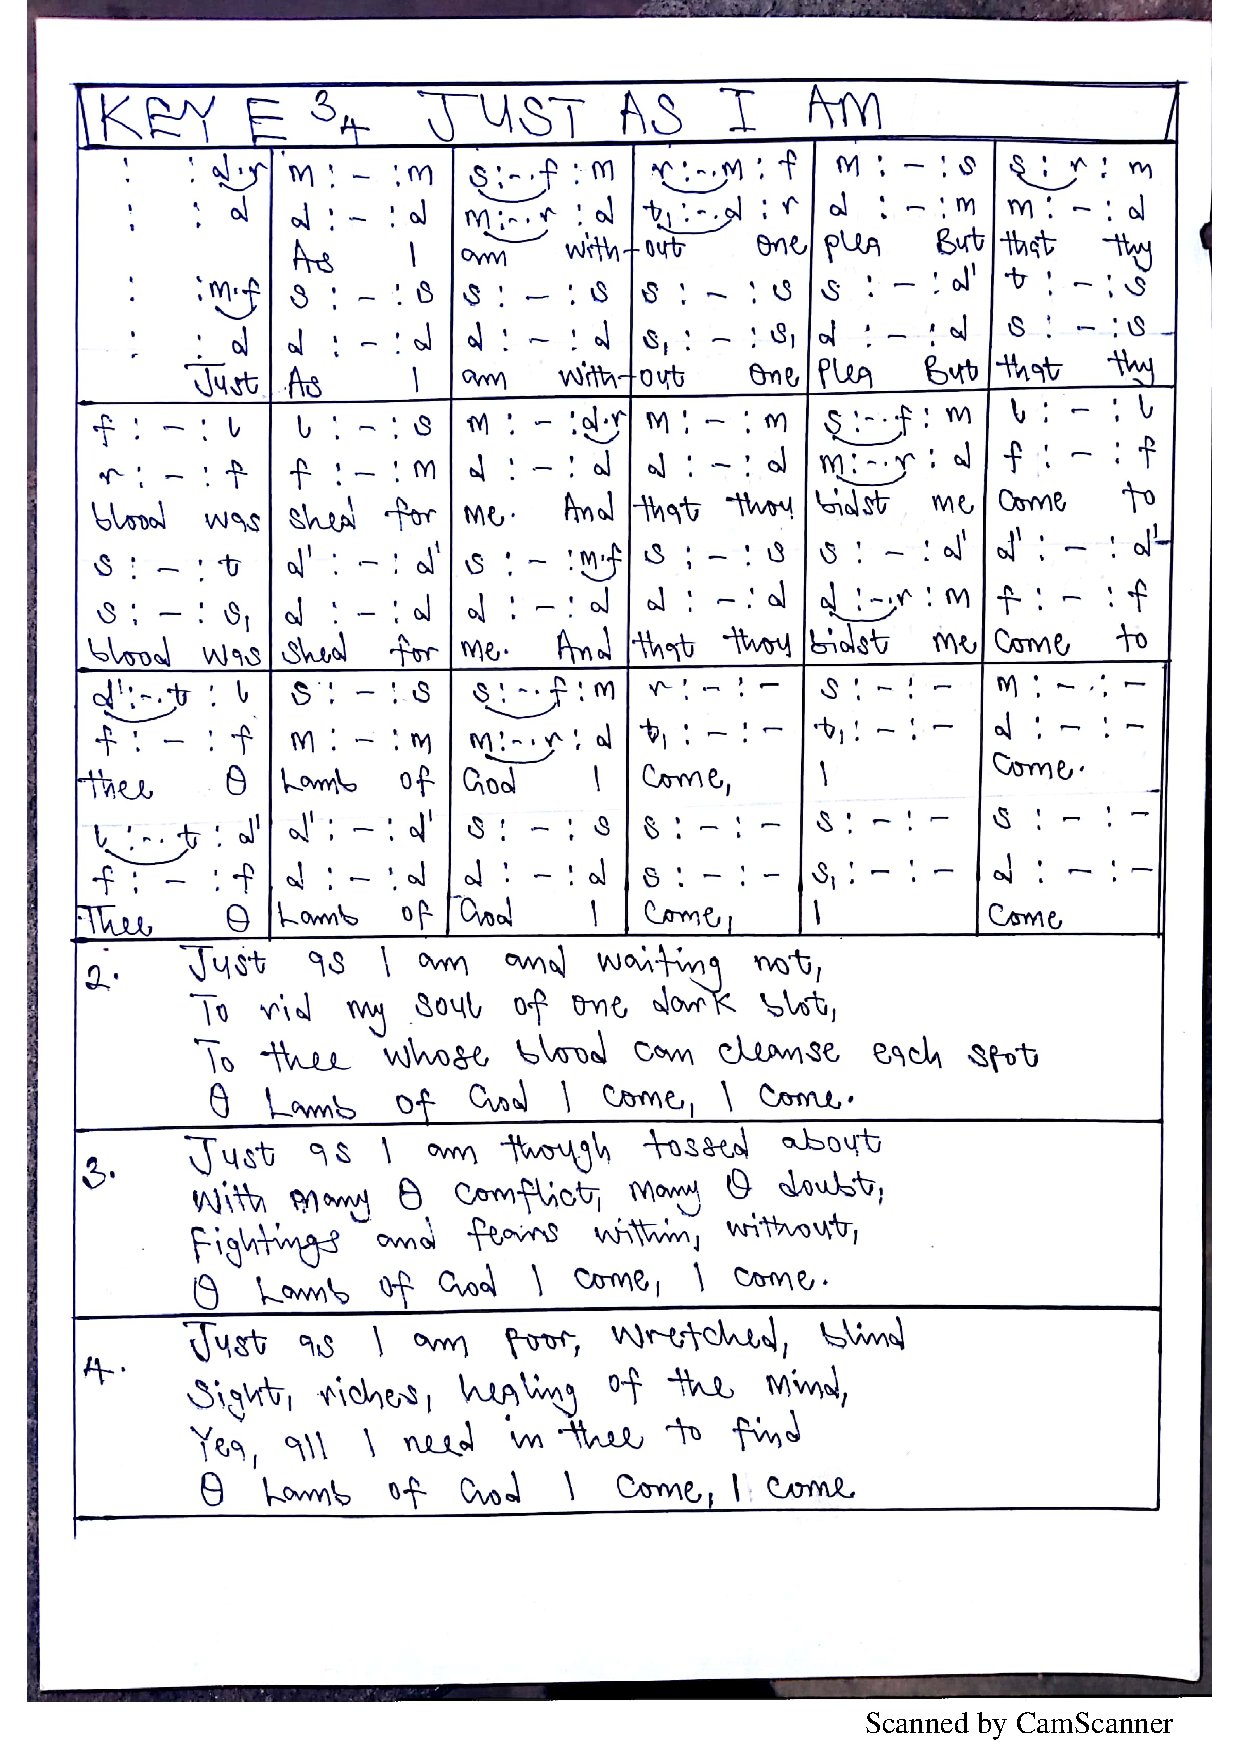 KEY E 3/4 JUST AS I AM
: :d.r | m : - :m | s :-.f :m | r :-.m : f | m : - : s | s : r : m
: : d | d : - :d | m :-.r : d | t₁ :-.d : r | d : - :m | m : - : d
As I | am with- | out one | plea But | that thy
: :m.f | s : - : s | s : - : s | s : - : s | s : - : d' | t : - : s
: : d | d : - : d | d : - : d | s₁ : - : s₁ | d : - : d | s : - : s
Just | As I | am with- | out one | plea But | that thy
f : - : l | l : - : s | m : - :d.r | m : - : m | s :-.f : m | l : - : l
r : - : f | f : - : m | d : - : d | d : - : d | m :-.r : d | f : - : f
blood was | shed for | me. And | that thou | bidst me | come to
s : - : t | d' : - : d' | s : - :m.f | s : - : s | s : - : d' | d' : - : d'
s : - : s₁ | d : - : d | d : - : d | d : - : d | d :-.r : m | f : - : f
blood was | shed for | me. And | that thou | bidst me | come to
d' :-.t : l | s : - : s | s :-.f : m | r : - : - | s : - : - | m : - : -
f : - : f | m : - : m | m :-.r : d | t₁ : - : - | t₁ : - : - | d : - : -
thee O | Lamb of | God I | come, | I | come.
l :-.t : d' | d' : - : d' | s : - : s | s : - : - | s : - : - | s : - : -
f : - : f | d : - : d | d : - : d | s : - : - | s₁ : - : - | d : - : -
Thee O | Lamb of | God I | come, | I | come
2. Just as I am and waiting not,
To rid my soul of one dark blot,
To thee whose blood can cleanse each spot
O Lamb of God I come, I come.
3. Just as I am though tossed about
With many O comflict, many O doubt,
Fightings and fears within, without,
O Lamb of God I come, I come.
4. Just as I am poor, wretched, blind
Sight, riches, healing of the mind,
Yea, all I need in thee to find
O Lamb of God I come, I come
Scanned by CamScanner